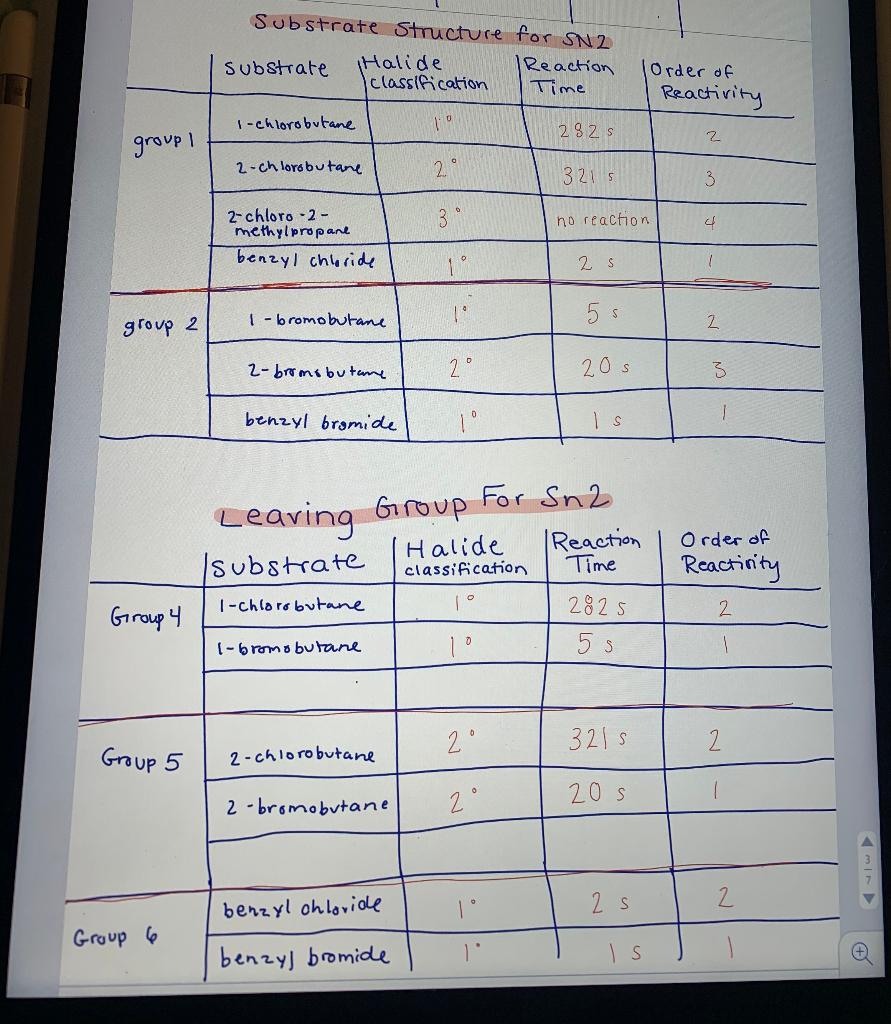 Substrate Structure for SN2
substrate Halide classification Reaction Time Order of Reactivity
group 1 1-chlorobutane 1° 282 s 2
2-chlorobutane 2° 321 s 3
2-chloro-2-methylpropane 3° no reaction 4
benzyl chloride 1° 2 s 1
group 2 1-bromobutane 1° 5 s 2
2-bromobutane 2° 20 s 3
benzyl bromide 1° 1 s 1
Leaving Group For Sn2
substrate Halide classification Reaction Time Order of Reactivity
Group 4 1-chlorobutane 1° 282 s 2
1-bromobutane 1° 5 s 1
Group 5 2-chlorobutane 2° 321 s 2
2-bromobutane 2° 20 s 1
Group 6 benzyl chloride 1° 2 s 2
benzyl bromide 1° 1 s 1
3
7